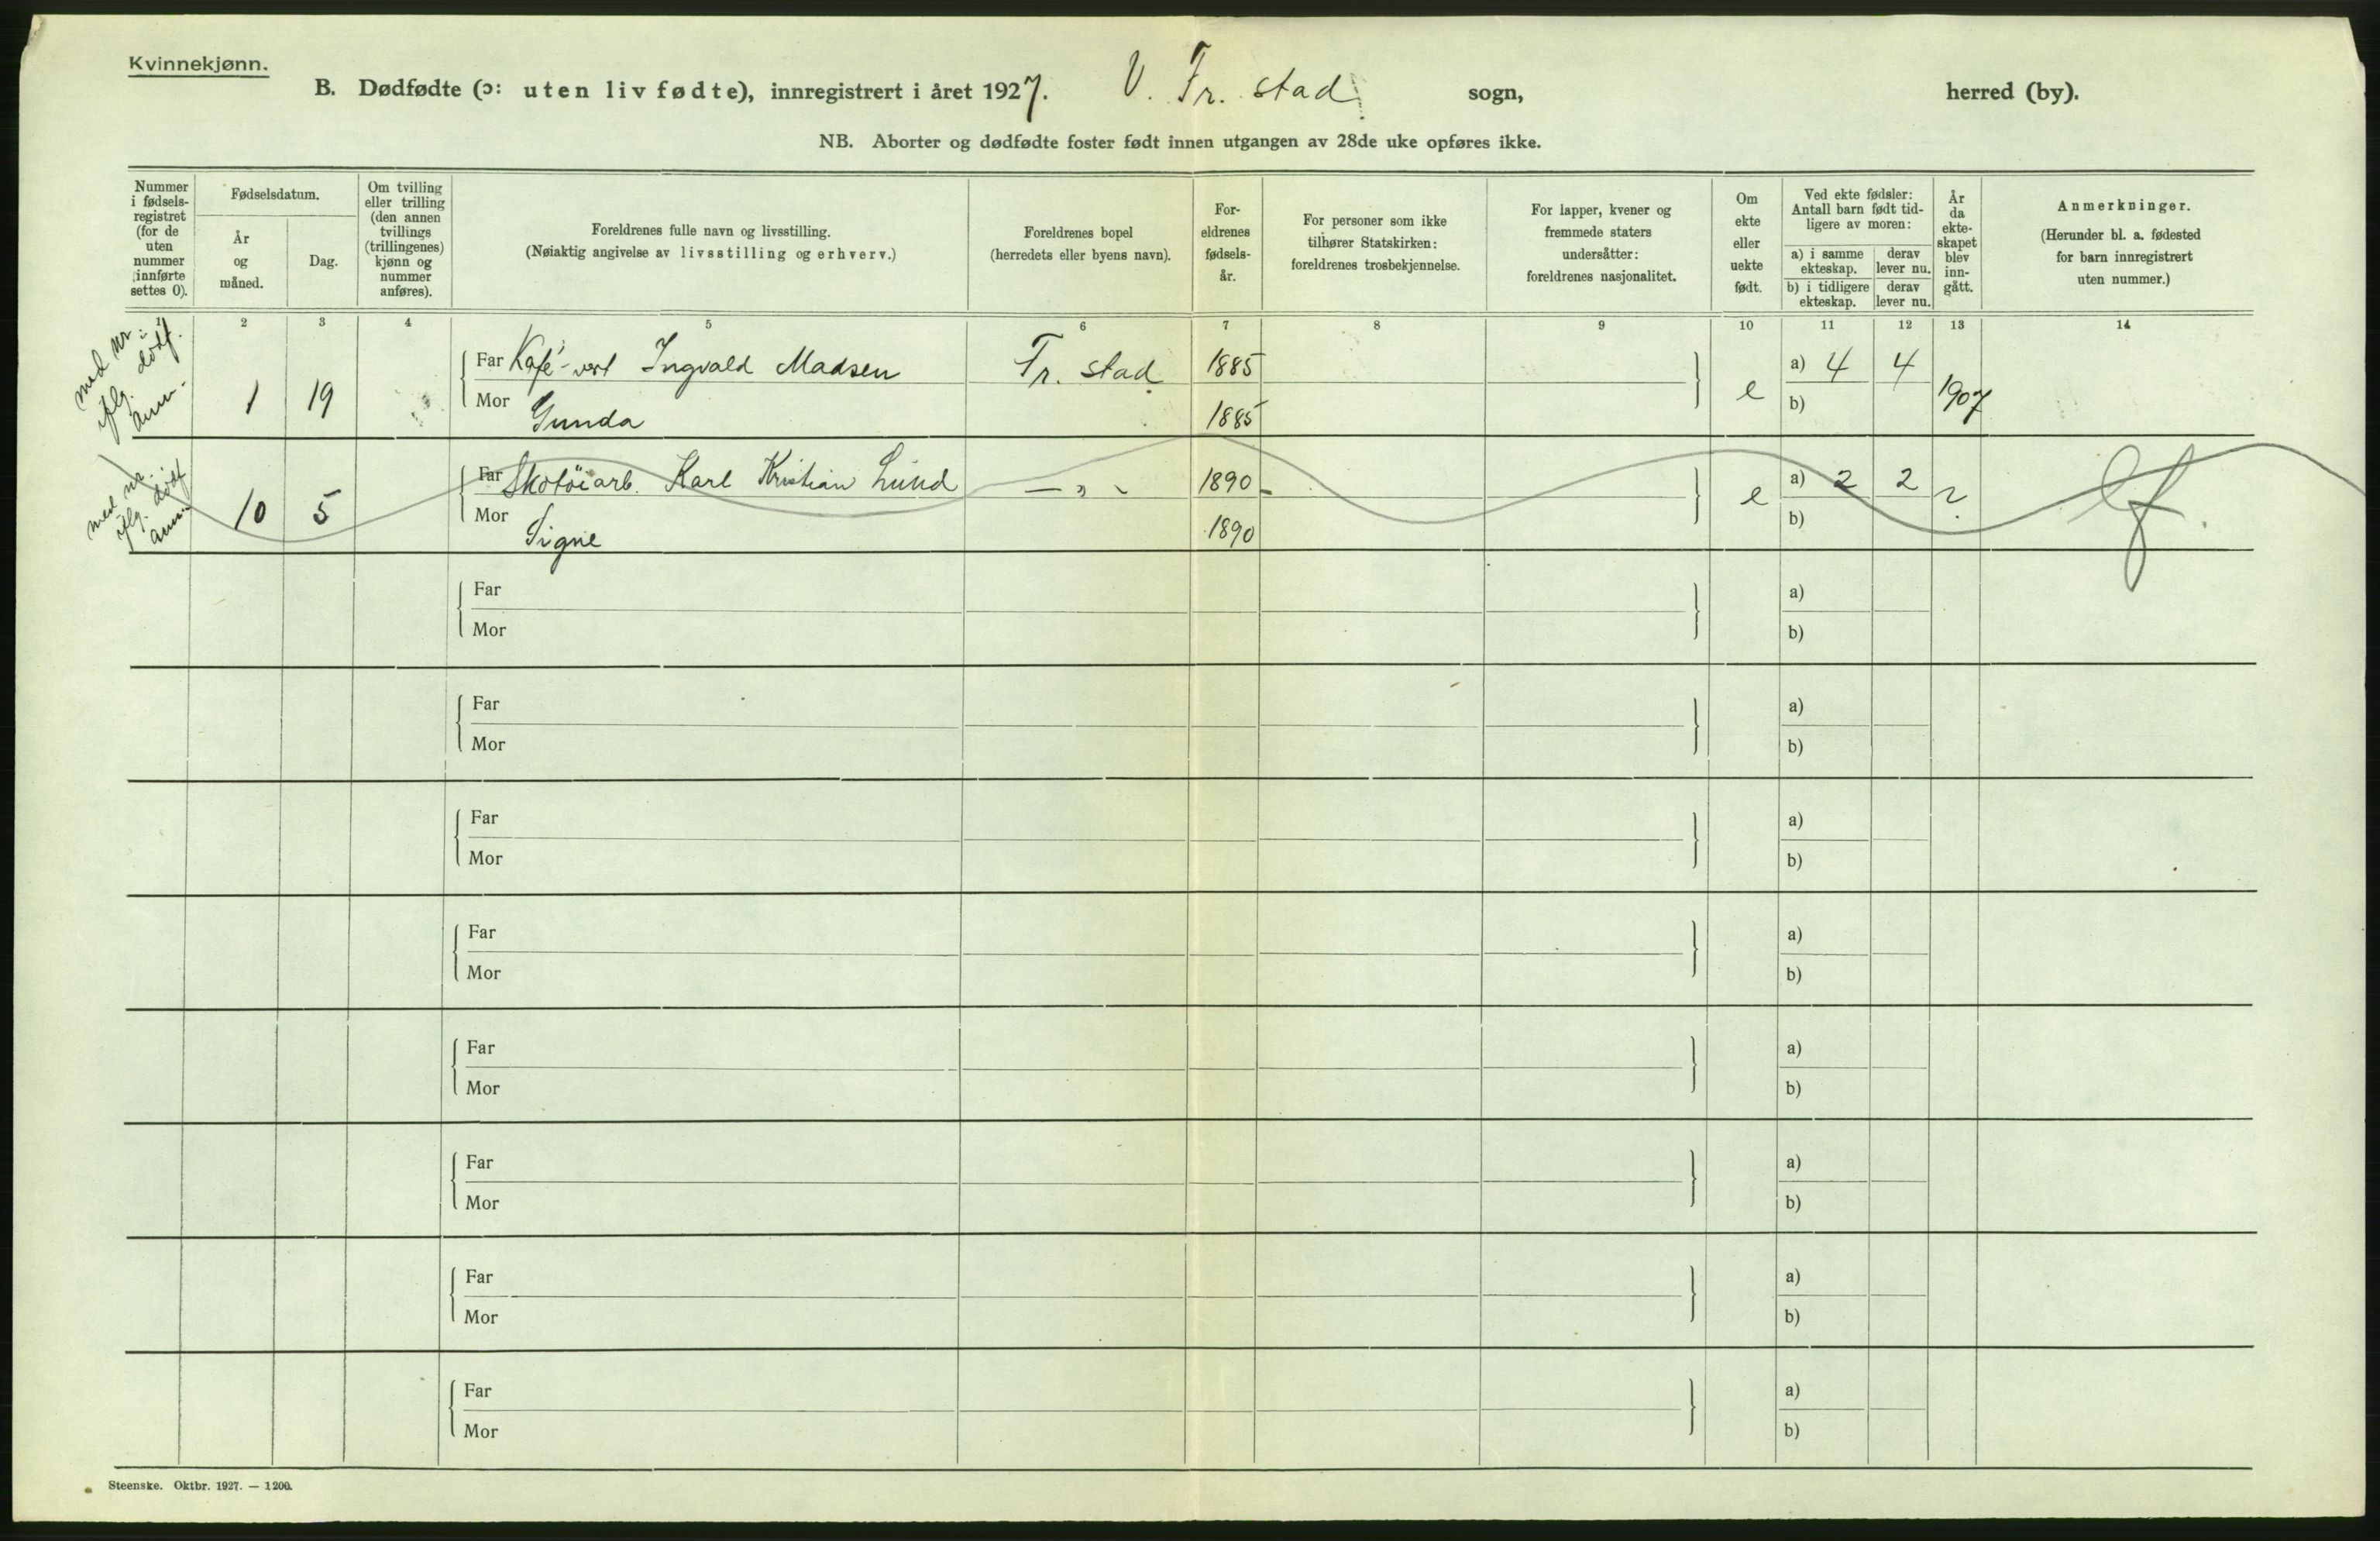 Kvinnekjønn.
B. Dødfødte (ɔ: uten liv fødte), innregistrert i året 1927. V. Fr. stad sogn, herred (by).
NB. Aborter og dødfødte foster født innen utgangen av 28de uke opføres ikke.
Nummer
i fødsels-
registret
(for de
uten
nummer
innførte
settes 0).
Fødselsdatum.
År
og
måned.
Dag.
Om tvilling
eller trilling
(den annen
tvillings
(trillingenes)
kjønn og
nummer
anføres).
Foreldrenes fulle navn og livsstilling.
(Nøiaktig angivelse av livsstilling og erhverv.)
Foreldrenes bopel
(herredets eller byens navn).
For-
eldrenes
fødsels-
år.
For personer som ikke
tilhører Statskirken:
foreldrenes trosbekjennelse.
For lapper, kvener og
fremmede staters
undersåtter:
foreldrenes nasjonalitet.
Om
ekte
eller
uekte
født.
Ved ekte fødsler:
Antall barn født tid-
ligere av moren:
a) i samme
ekteskap.
derav
lever nu.
b) i tidligere
ekteskap.
derav
lever nu.
År
da
ekte-
skapet
blev
inn-
gått.
Anmerkninger.
(Herunder bl. a. fødested
for barn innregistrert
uten nummer.)
1 2 3 4 5 6 7 8 9 10 11 12 13 14
med nr.
iflg. dødf.
anm.
1 19
Far Kafé-vert Ingvald Madsen Fr. stad 1885
Mor Gunda 1885
e a) 4 4
b)
1907
med nr.
iflg. dødf
anm.
10 5
Far Skotöiarb. Karl Kristian Lund — " - 1890
Mor Signe 1890
e a) 2 2
b)
?
Far a)
Mor b)
Far a)
Mor b)
Far a)
Mor b)
Far a)
Mor b)
Far a)
Mor b)
Far a)
Mor b)
Far a)
Mor b)
Far a)
Mor b)
Steenske. Oktbr. 1927. — 1200.